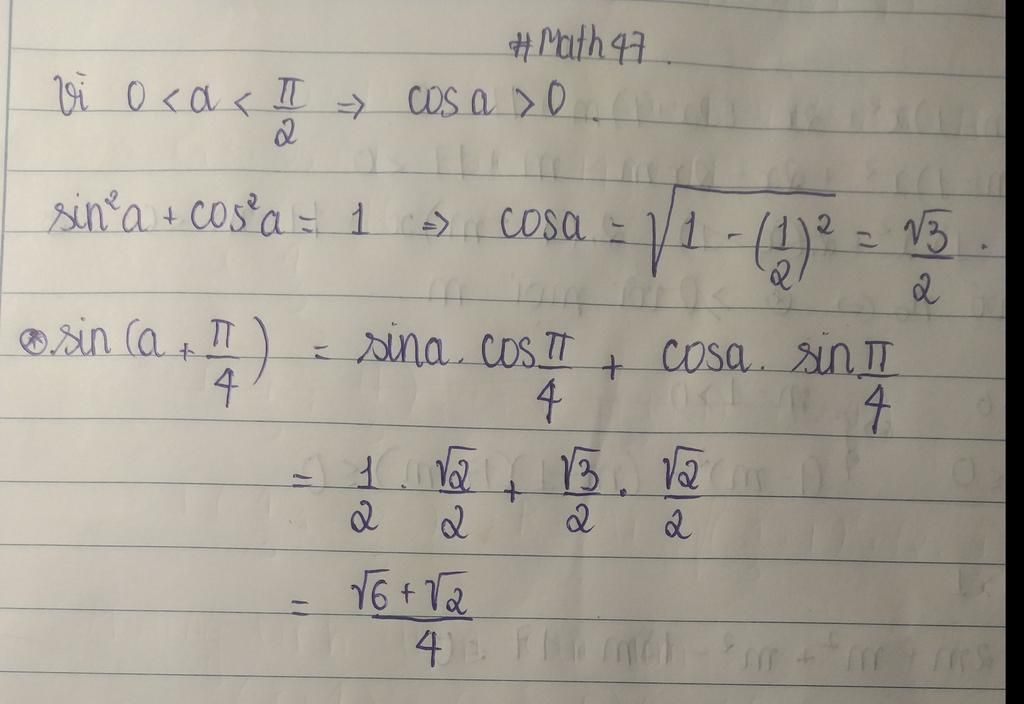 #Math47.
Vì 0 < a < π/2 ⇒ cos a > 0.
sin²a + cos²a = 1 ⇒ cosa = √(1 - (1/2)²) = √3/2.
⊛ sin(a + π/4) = sina. cos π/4 + cosa. sin π/4
= 1/2 . √2/2 + √3/2 . √2/2
= (√6 + √2)/4